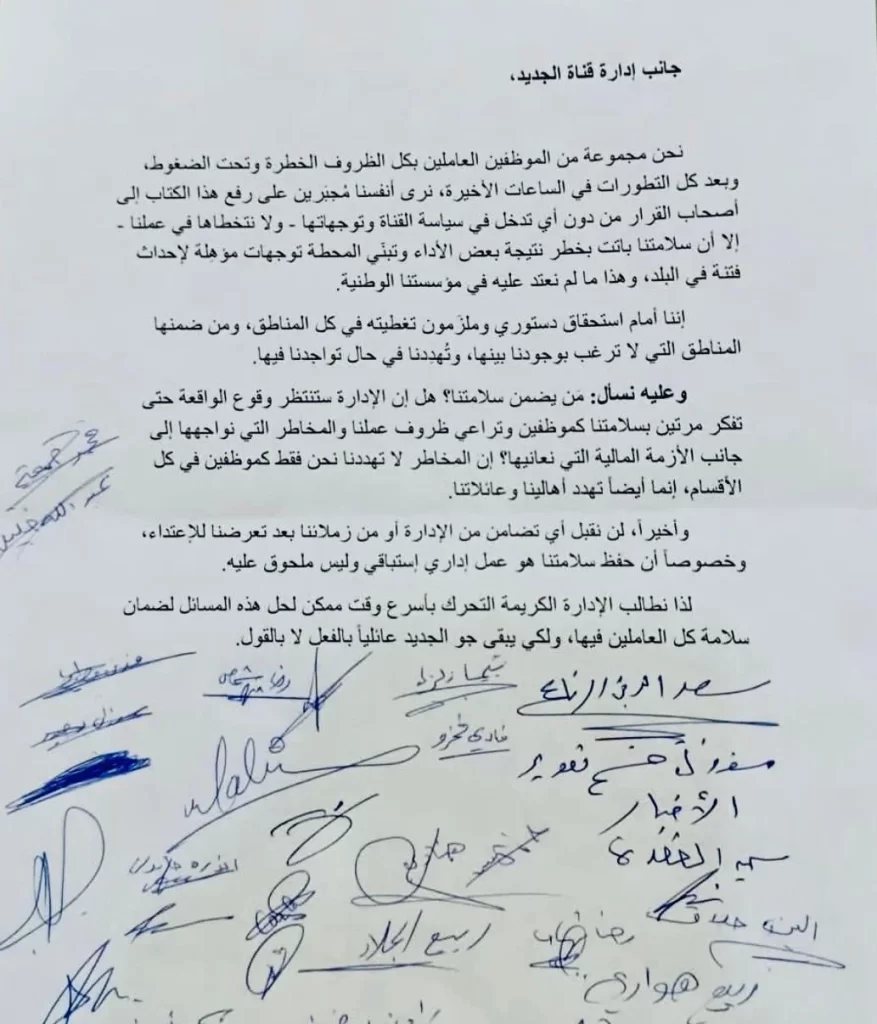 جانب إدارة قناة الجديد،
نحن مجموعة من الموظفين العاملين بكل الظروف الخطرة وتحت الضغوط،
وبعد كل التطورات في الساعات الأخيرة، نرى أنفسنا مُجبَرين على رفع هذا الكتاب إلى
أصحاب القرار من دون أي تدخل في سياسة القناة وتوجهاتها - ولا نتخطاها في عملنا -
إلا أن سلامتنا باتت بخطر نتيجة بعض الأداء وتبنّي المحطة توجهات مؤهِلة لإحداث
فتنة في البلد، وهذا ما لم نعتد عليه في مؤسستنا الوطنية.
إننا أمام استحقاق دستوري وملزَمون تغطيته في كل المناطق، ومن ضمنها
المناطق التي لا ترغب بوجودنا بينها، وتُهدِدنا في حال تواجدنا فيها.
وعليه نسأل: مَن يضمن سلامتنا؟ هل إن الإدارة ستنتظر وقوع الواقعة حتى
تفكر مرتين بسلامتنا كموظفين وتراعي ظروف عملنا والمخاطر التي نواجهها إلى
جانب الأزمة المالية التي نعانيها؟ إن المخاطر لا تهددنا نحن فقط كموظفين في كل
الأقسام، إنما أيضاً تهدد أهالينا وعائلاتنا.
وأخيراً، لن نقبل أي تضامن من الإدارة أو من زملائنا بعد تعرضنا للإعتداء،
وخصوصاً أن حفظ سلامتنا هو عمل إداري إستباقي وليس ملحوق عليه.
لذا نطالب الإدارة الكريمة التحرك بأسرع وقت ممكن لحل هذه المسائل لضمان
سلامة كل العاملين فيها، ولكي يبقى جو الجديد عائلياً بالفعل لا بالقول.
فادي
الأخبار
ربيع الجلاد
رضا
ربيع هواري